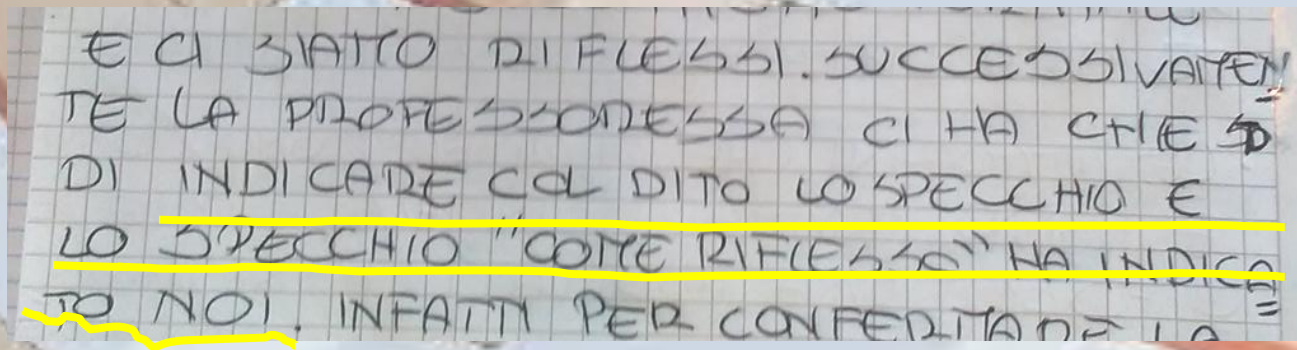 E CI SIAMO RIFLESSI. SUCCESSIVAMEN
TE LA PROFESSORESSA CI HA CHIESTO
DI INDICARE COL DITO LO SPECCHIO E
LO SPECCHIO "COME RIFLESSO" HA INDICA
TO NOI. INFATTI PER